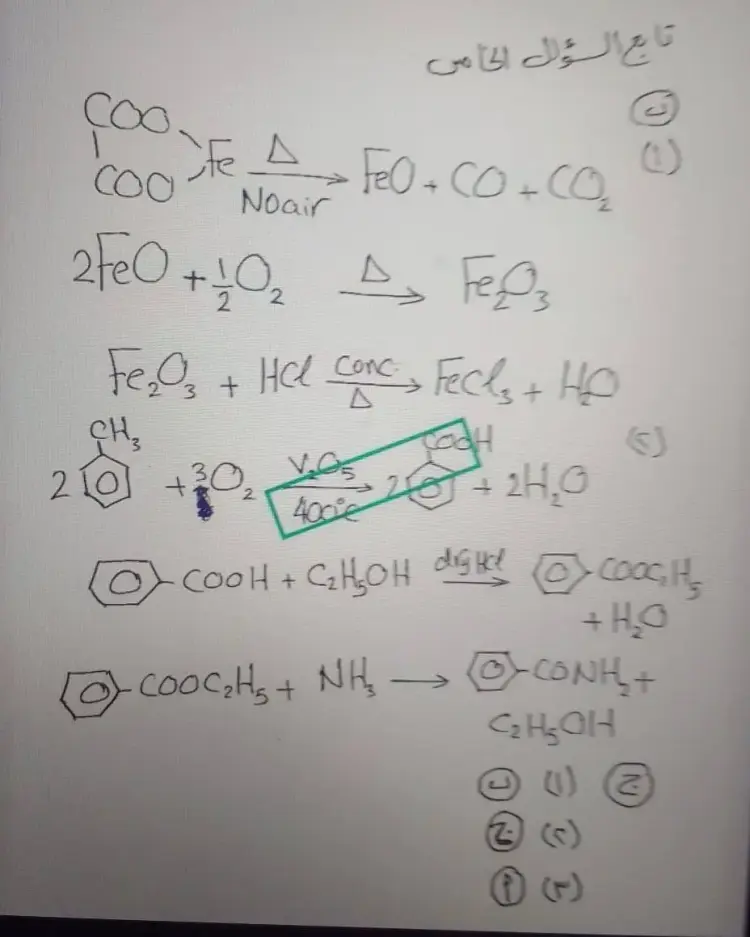 تابع السؤال الخامس
ب
(١)
COO
COO Fe Δ No air → FeO + CO + CO₂
2FeO + ½O₂ Δ → Fe₂O₃
Fe₂O₃ + HCl Conc. Δ → FeCl₃ + H₂O
(٢)
CH₃ COOH
2 + 3O₂ V₂O₅ 400°C → 2 + 2H₂O
COOH + C₂H₅OH dry HCl → COOC₂H₅
+ H₂O
COOC₂H₅ + NH₃ → CONH₂ +
C₂H₅OH
ج (١) ب
(٢) ج
(٣) أ